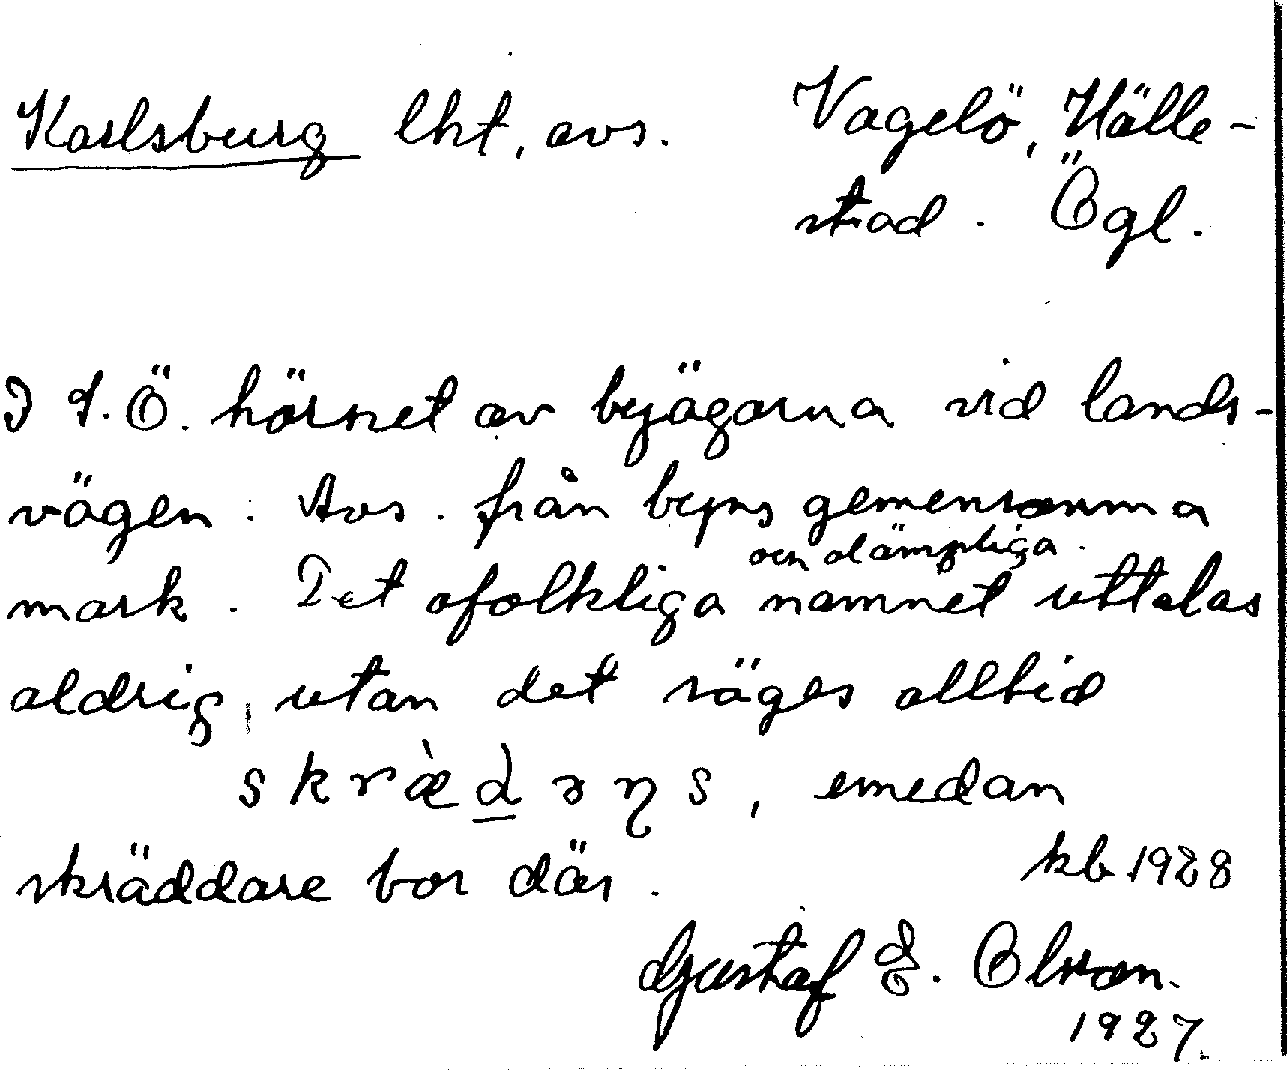 Karlsburg lht, avs. Vagelö, Hälle-
stad. Ögl.
I S.Ö. hörnet av byägorna vid lands-
vägen. Avs. från byns gemensamma
och olämpliga
mark. Det ofolkliga namnet uttalas
aldrig, utan det säges alltid
skræ̀dəŋs, emedan
skräddare bor där.
kb 1928
Gustaf E. Olson.
1927.